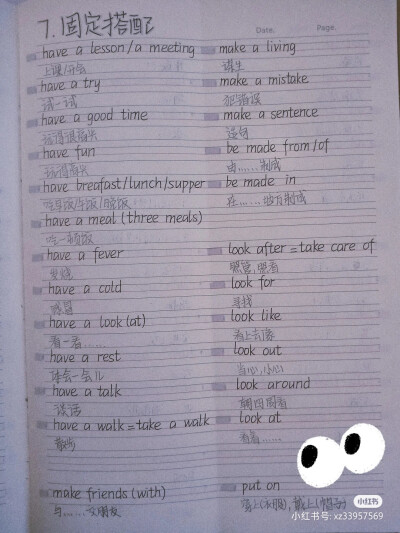 7.固定搭配
Date. Page.
have a lesson/a meeting
上课/开会
have a try
试一试
have a good time
玩得很高兴
have fun
玩得高兴
have breafast/lunch/supper
吃早饭/午饭/晚饭
have a meal (three meals)
吃一顿饭
have a fever
发烧
have a cold
感冒
have a look (at)
看一看……
have a rest
休会一会儿
have a talk
谈话
have a walk = take a walk
散步
make friends (with)
与……交朋友
make a living
谋生
make a mistake
犯错误
make a sentence
造句
be made from/of
由……制成
be made in
在……地方制成
look after = take care of
照管,照看
look for
寻找
look like
看上去像
look out
当心,小心
look around
朝四周看
look at
看着……
put on
穿上(衣服),戴上(帽子)
小红书
小红书号: xz33957569